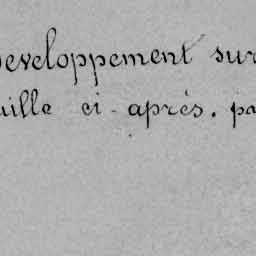 Developpement sur
uille ci-après. pa